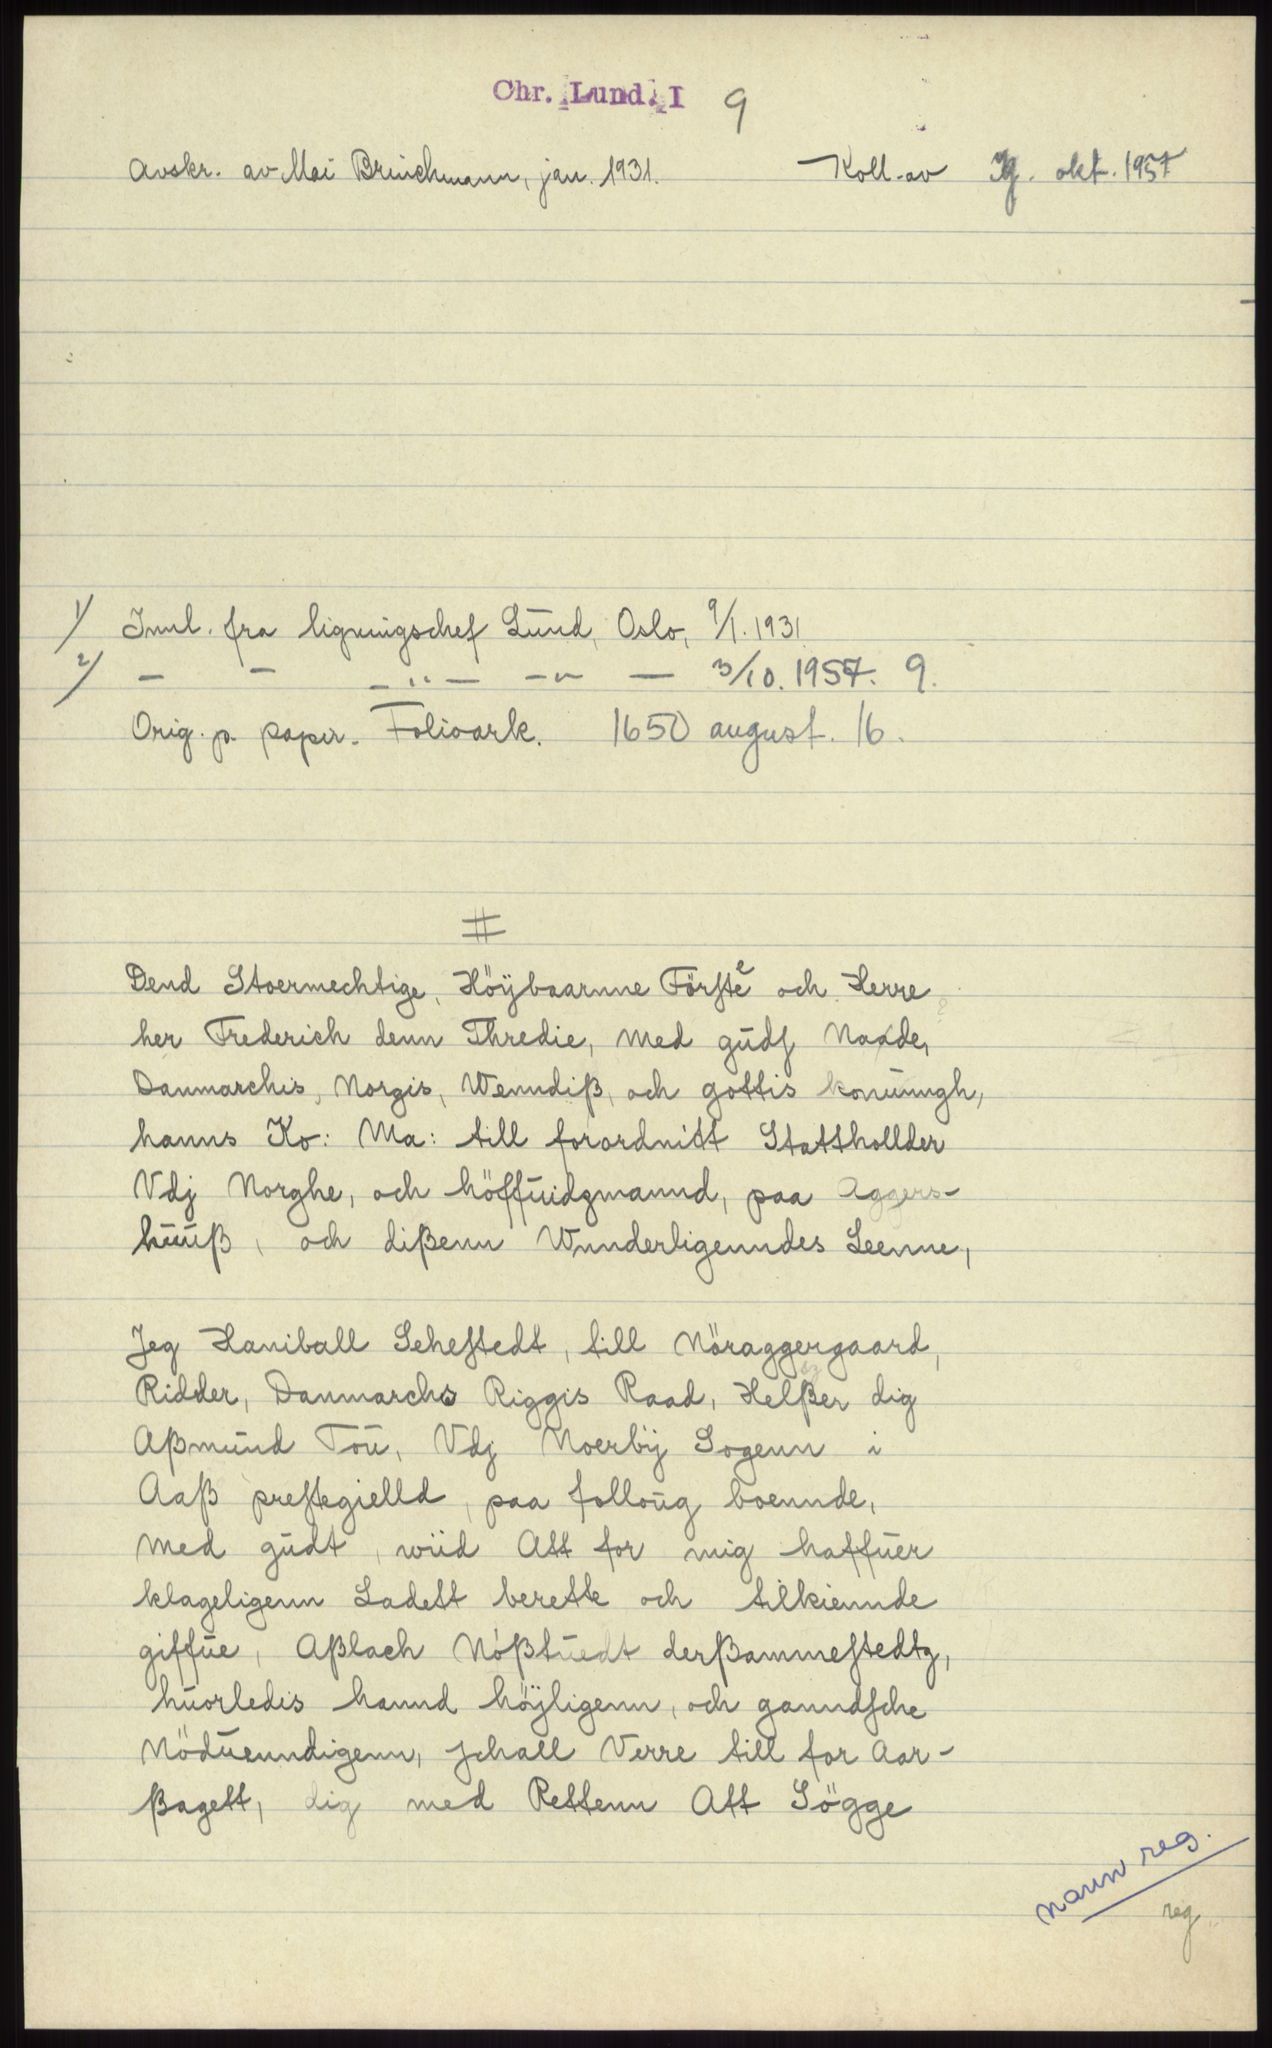 Chr. Lund. I 9
Avskr. av Mai Brinchmann, jan. 1931. Koll. av okt. 1957
1/ Innl. fra ligningschef Lund, Oslo, 9/1. 1931
2/ — — — " — — " — — 3/10. 1957. 9.
Orig. p. papir. Folioark. 1650 august. 16.
#
Dend Stoermechtige, Höÿbaarnne Förste och Herre
her Frederich denn Thredie, med gudſ Naade,
Danmarchis, Norgis, Wenndiß, och gottis konūngh,
hanns Ko: Ma: till forordnitt Stattholldar
Vdj Norghe, och höffuidzmannd, paa Aggers-
huūß, och dißenn Wnnderligenndes Leenne,
Jeg Haniball Seheſtedt, till Nöraggergaard,
Ridder, Danmarchs Riggis Raad, Helßer dig
Aßmūnd Toū, Vdj Noerbÿ Sogenn i
Aaß preſtegielld, paa folloūg boennde,
med gūdt, wiid Att for mig haffūer
klageligenn Ladett berette och tilkiennde
giffūe, Aßlach Nößtūedt derßammeſtedtz,
hūorledis hannd höÿligenn, och ganndſche
Nödūenndigenn, ſchall Verre till for Aar-
ßagett, dig med Rettenn Att Sögge
navn reg.
reg